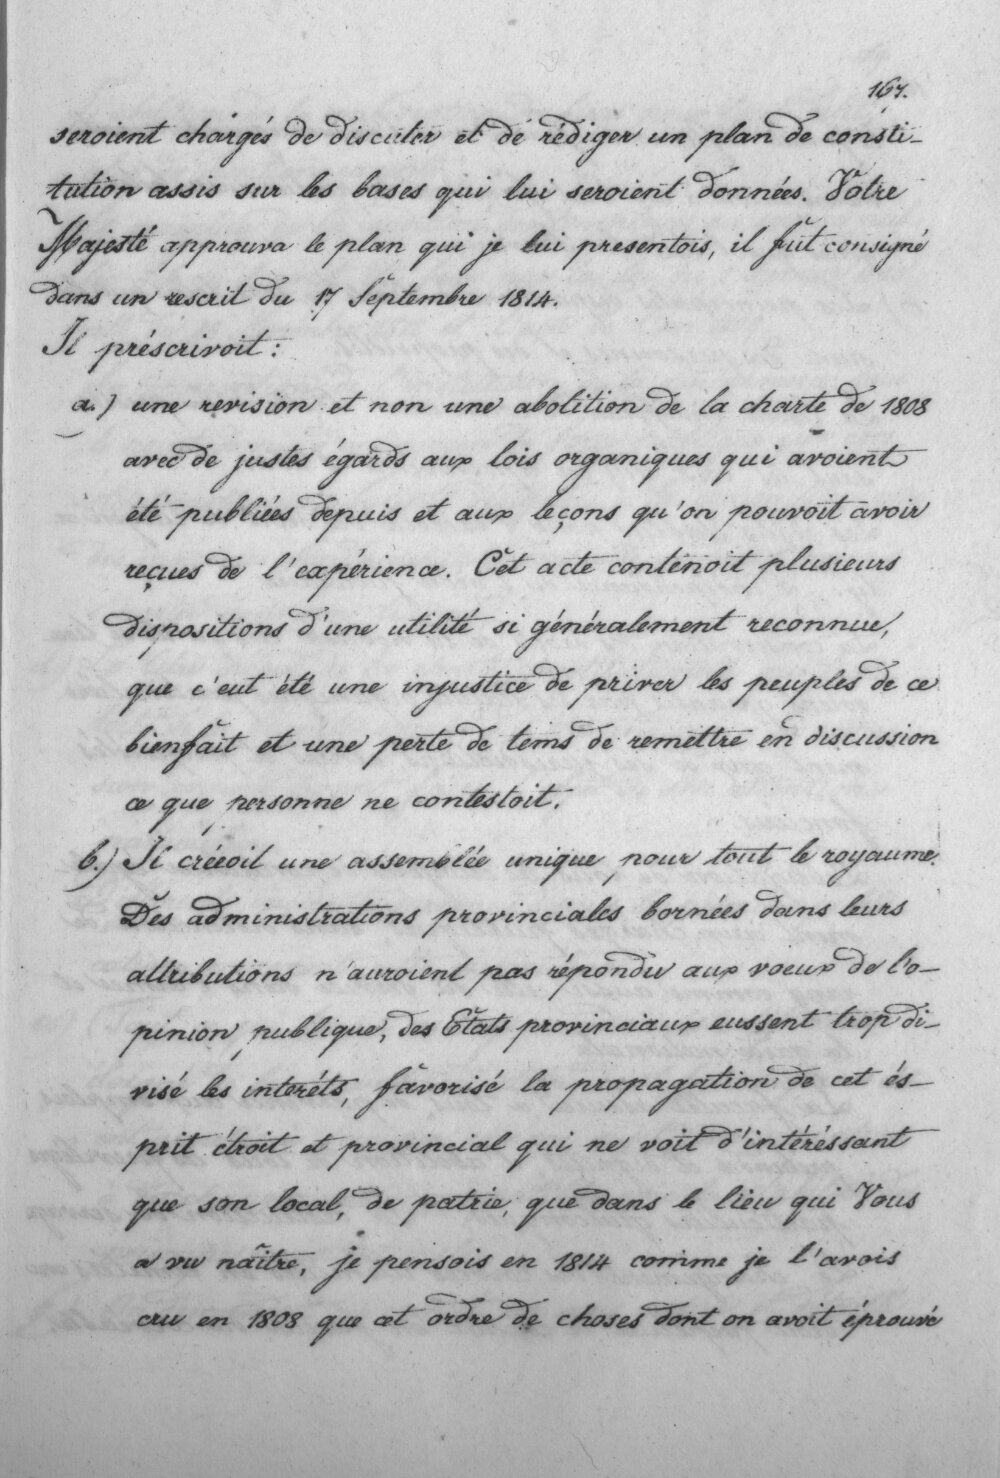 167.
seroient chargés de discuter et de rédiger un plan de consti-
tution assis sur les bases qui lui seroient données. Votre
Majesté approuva le plan qui je lui presentois, il fut consigné
dans un rescrit du 17 Septembre 1814.
Il préscrivoit:
a.) une revision et non une abolition de la charte de 1808
avec de justes égards aux lois organiques qui avoient
été publiées depuis et aux leçons qu'on pouvoit avoir
reçues de l'expérience. Cet acte contenoit plusieurs
dispositions d'une utilité si généralement reconnue,
que c'eut été une injustice de priver les peuples de ce
bienfait et une perte de tems de remettre en discussion
ce que personne ne contestoit.
b.) Il créeoit une assemblée unique pour tout le royaume.
Des administrations provinciales bornées dans leurs
attributions n'auroient pas répondu aux voeux de l'o-
pinion publique, des Etats provinciaux eussent trop di-
visé les interéts, favorisé la propagation de cet és-
prit étroit et provincial qui ne voit d'intéréssant
que son local, de patrie, que dans le lieu qui Vous
a vu naître, je pensois en 1814 comme je l'avois
cru en 1808 que cet ordre de choses dont on avoit éprouvé